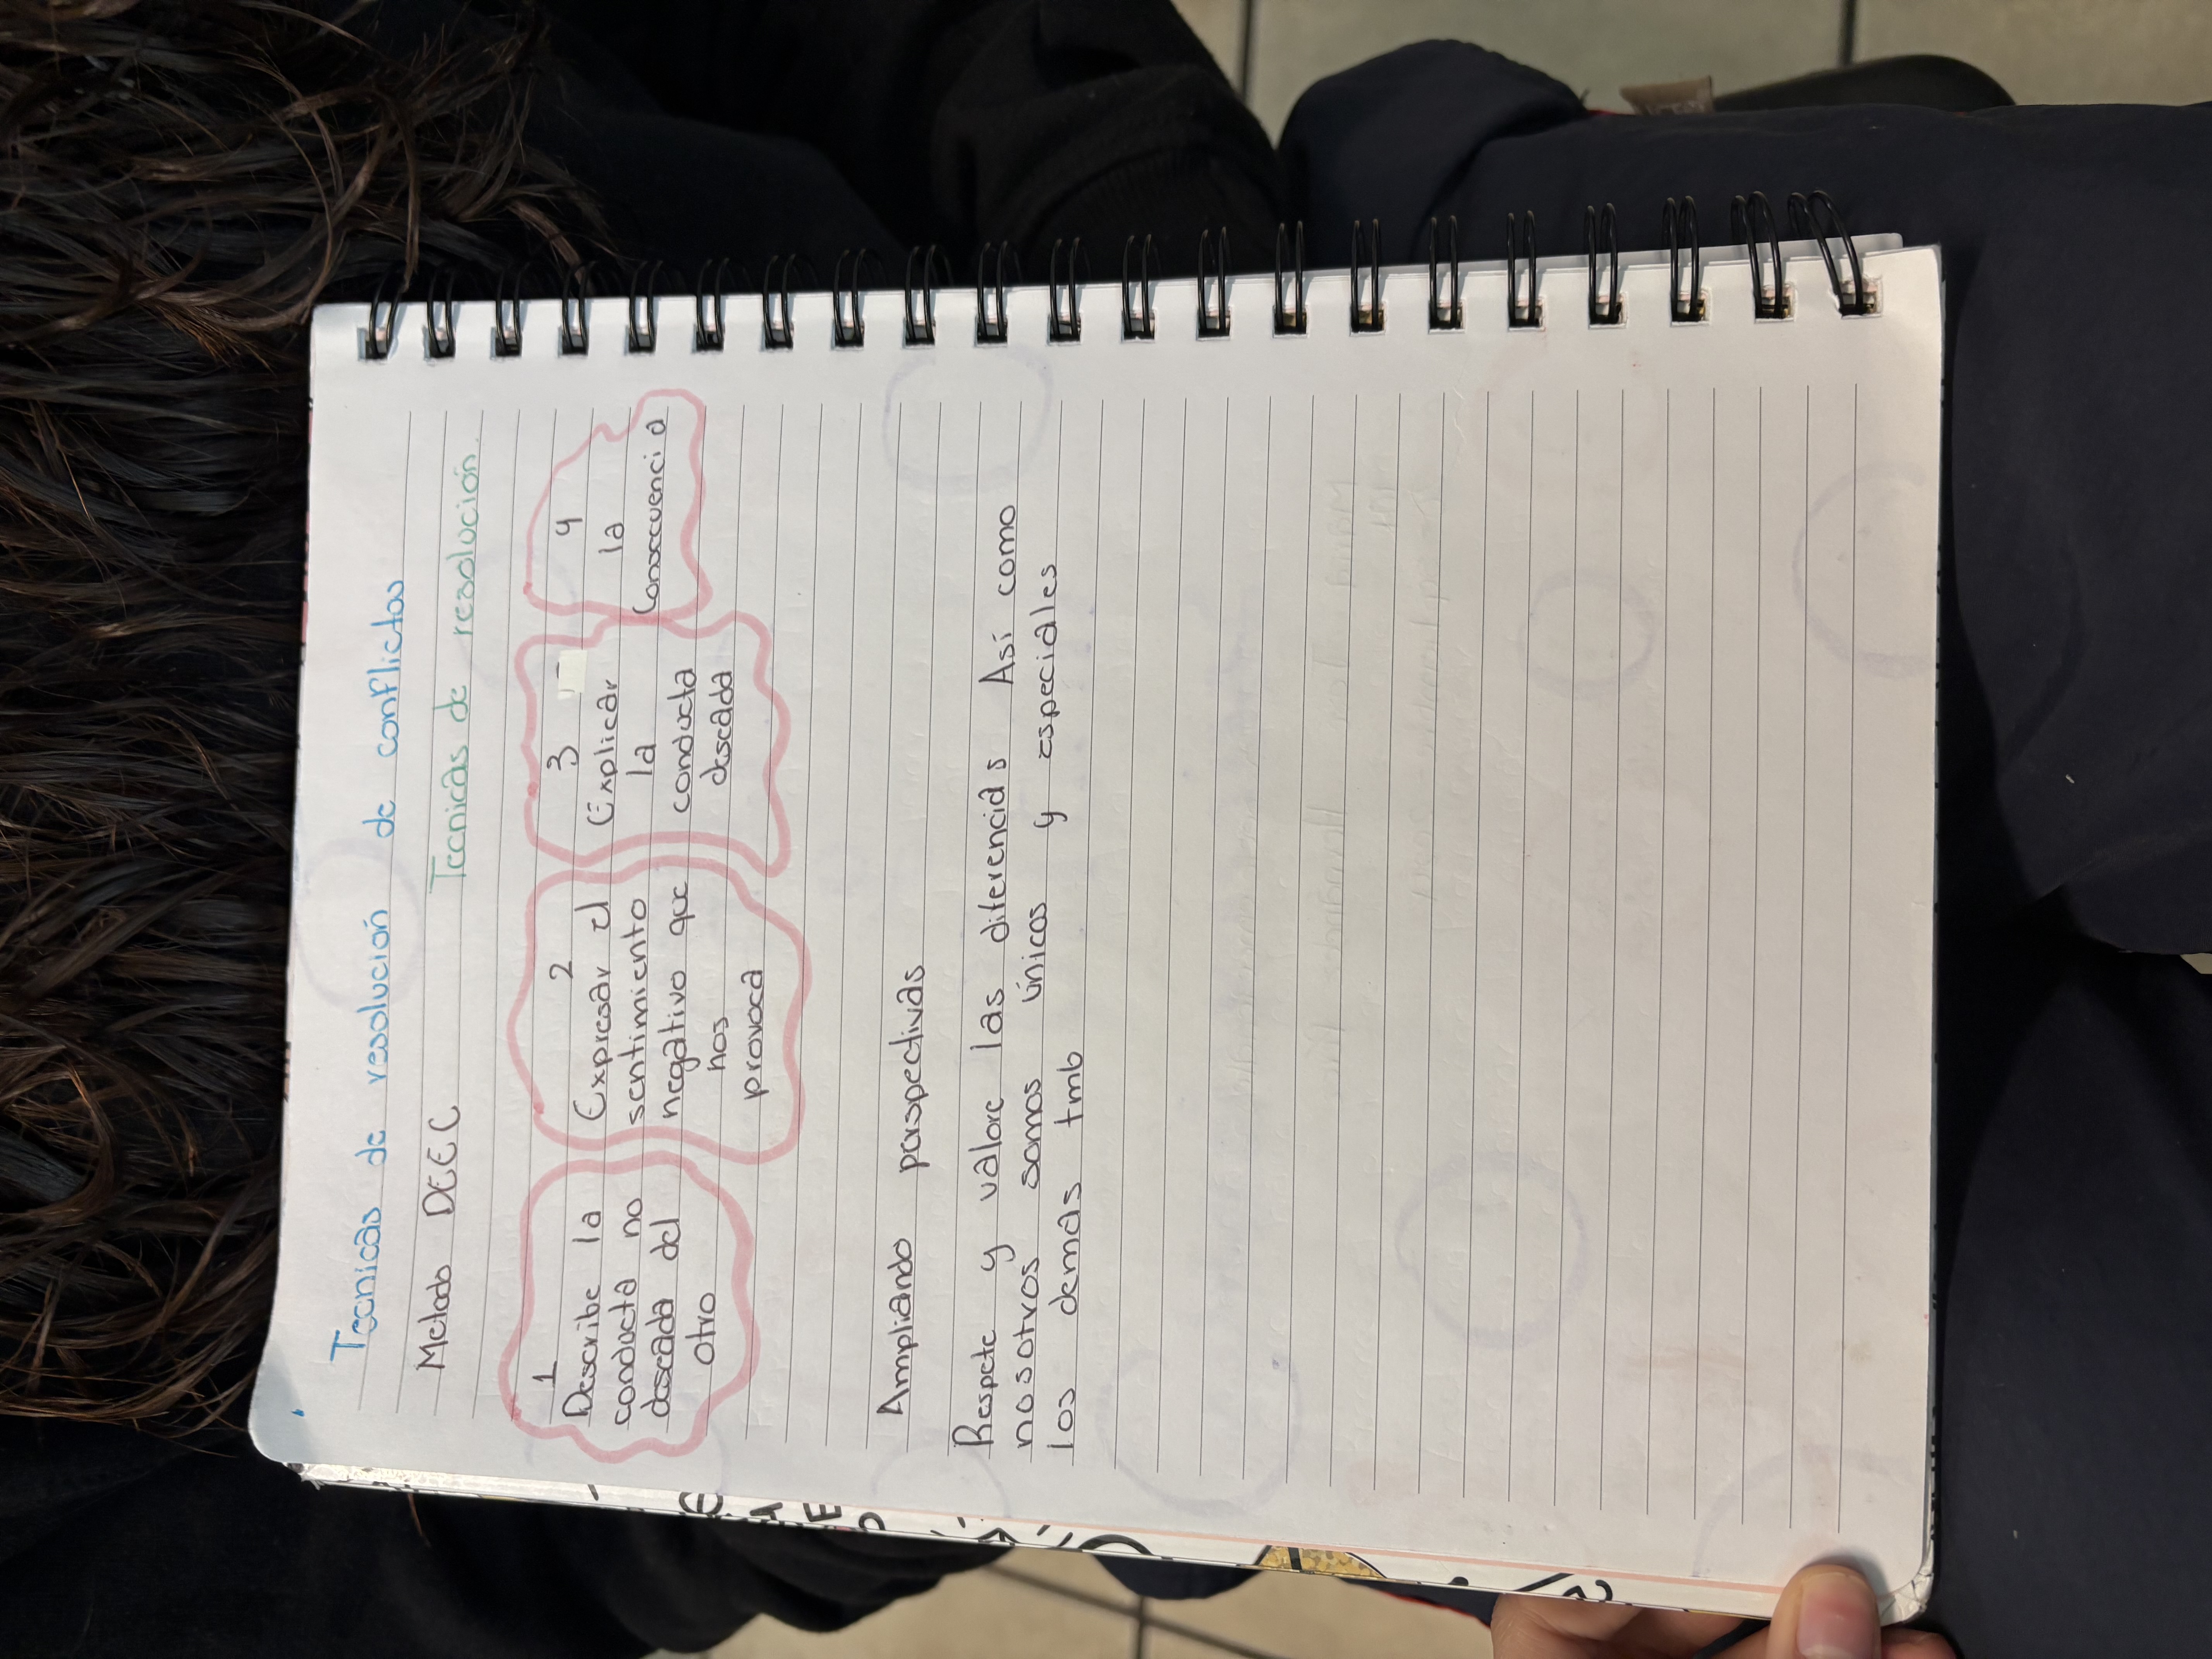 Tecnicas de resolución de conflictos
Metodo DEEC
Tecnicas de resolución.
1
Describe la
conducta no
deseada del
otro
2
Expresar el
sentimiento
negativo que
nos
provoca
3
Explicar
la
conducta
deseada
4
la
Consecuencia
Ampliando perspectivas
Respete y valore las diferencias Así como
nosotros somos únicos y especiales
los demas tmb